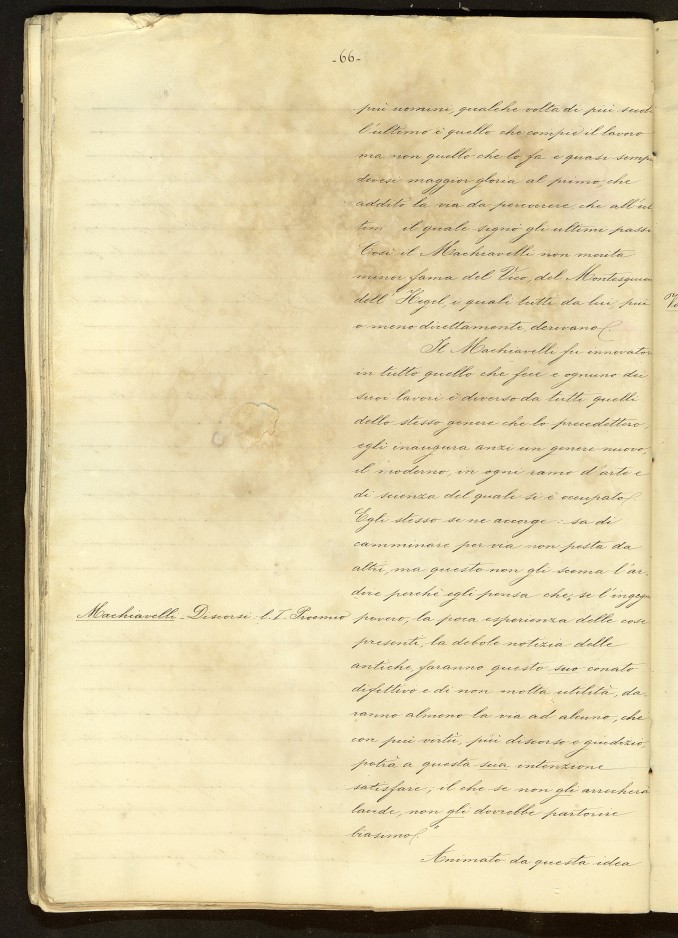 -66-
più uomini, qualche volta di più secoli
l'ultimo è quello che compie il lavoro
ma non quello che lo fa e quasi sempre
devesi maggior gloria al primo, che
additò la via da percorrere che all'ul-
timo il quale segnò gli ultimi passi.
Così il Machiavelli non merita
minor fama del Vico, del Montesquieu
dell'Hegel, i quali tutti da lui, più
o meno direttamente, derivano.
Il Machiavelli fu innovatore
in tutto quello che fece e ognuno dei
suoi lavori è diverso da tutti quelli
dello stesso genere che lo precedettero,
egli inaugura anzi un genere nuovo,
il moderno, in ogni ramo d'arte e
di scienza del quale si è occupato.
Egli stesso se ne accorge: sa di
camminare per via non pesta da
altri, ma questo non gli scema l'ar-
dire perchè egli pensa che, se l'ingegno
Machiavelli - Discorsi - l. I - Proemio
povero, la poca esperienza delle cose
presenti, la debole notizia delle
antiche, faranno questo suo conato
difettivo e di non molta utilità, da-
ranno almeno la via ad alcuno, che
con più vertù, più discorso e giudizio,
potrà a questa sua intenzione
satisfare; il che se non gli arrecherà
laude, non gli dovrebbe partorire
biasimo."
Animato da questa idea